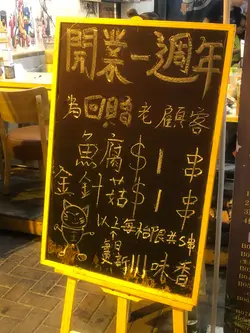 開業一週年
為回饋老顧客
魚腐$1串
金針菇$1串
以上每枱限共5串
!!!味香